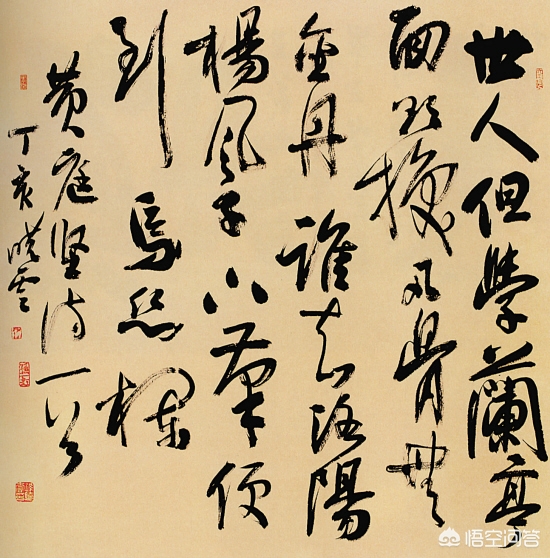 世人但學蘭亭
面欲換凡骨無
金丹誰知洛陽
楊風子下筆便
到烏絲欄
黄庭坚诗一首
丁亥晓雲
悟空问答